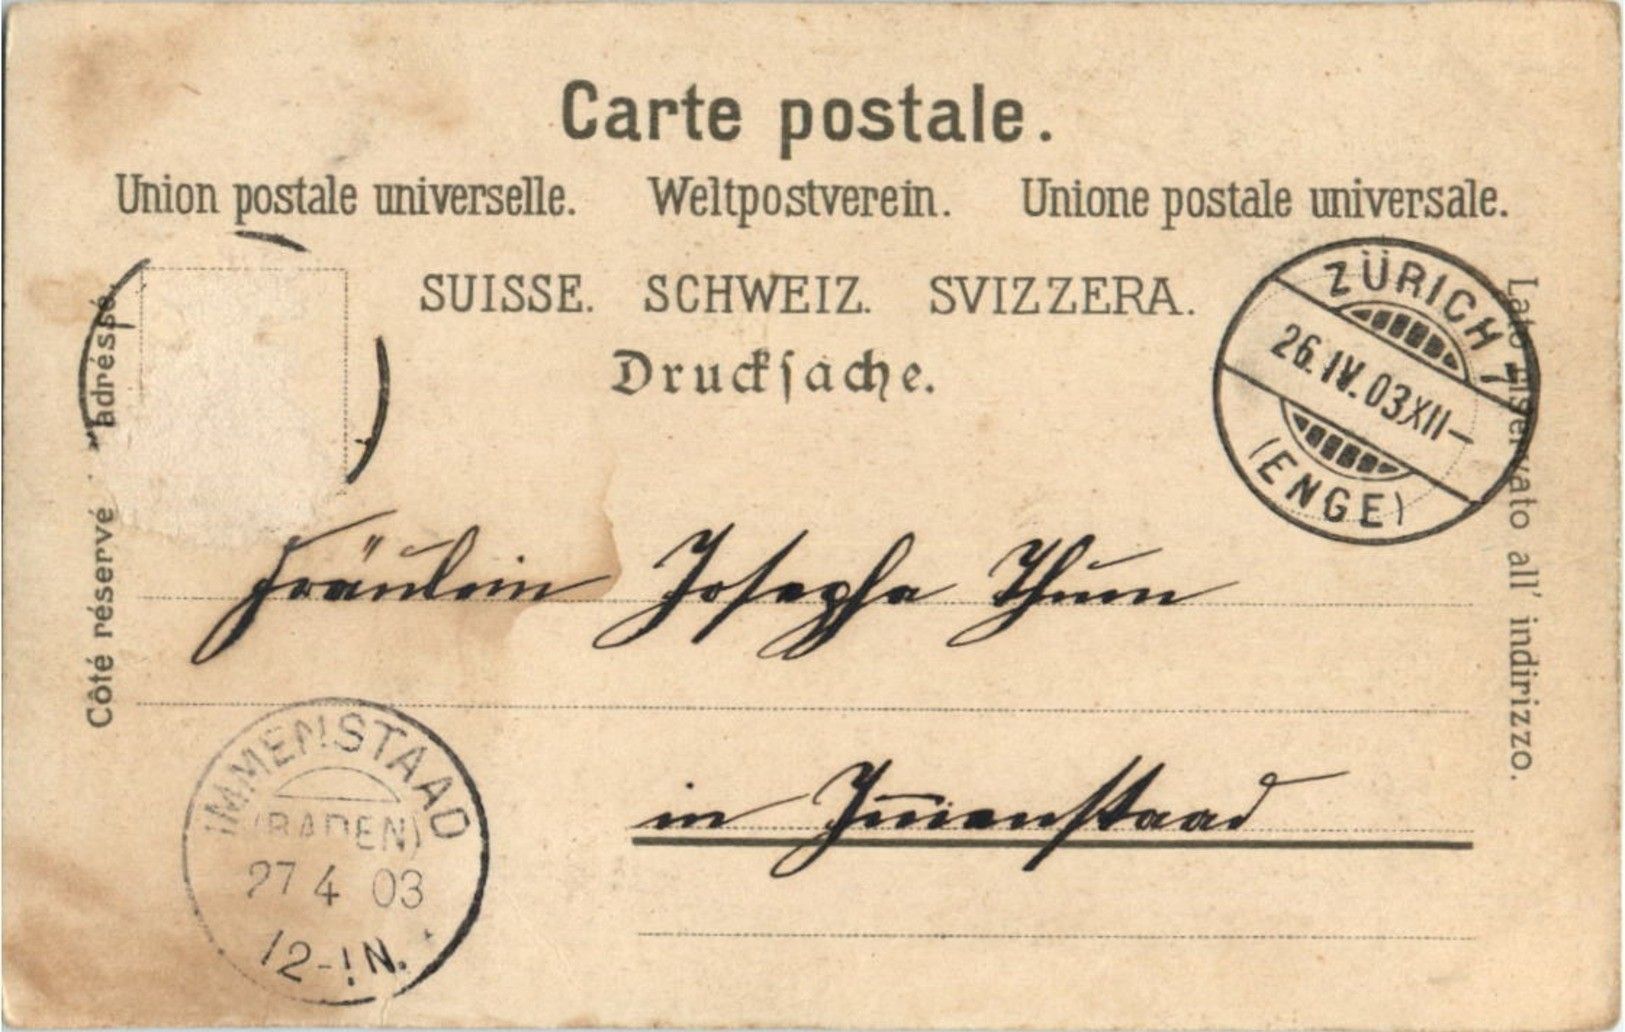 Carte postale.
Union postale universelle. Weltpostverein. Unione postale universale.
SUISSE. SCHWEIZ. SVIZZERA.
Drucksache.
Côté réservé
adrésse.
Lato riservato all' indirizzo.
ZÜRICH 1
26.IV.03XII–
(ENGE)
Fräulein Josepha Thum
in Immenstaad
IMMENSTAAD
(BADEN)
27 4 03
12-1N.